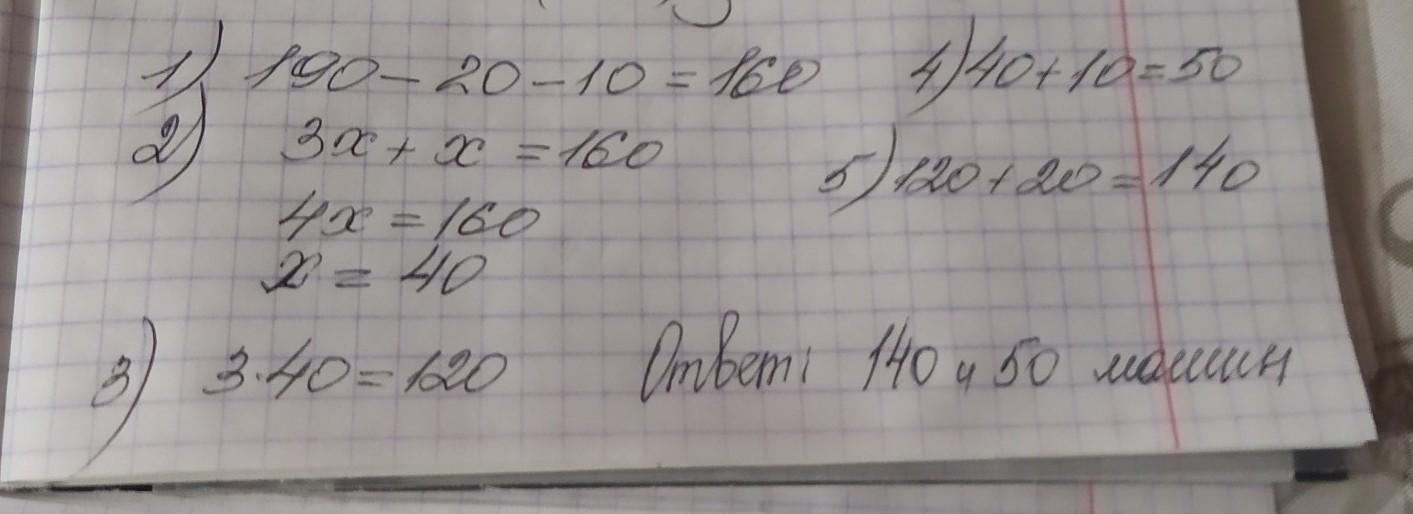 1) 190 - 20 - 10 = 160
2) 3x + x = 160
4x = 160
x = 40
3) 3·40 = 120
4) 40 + 10 = 50
5) 120 + 20 = 140
Ответ: 140 и 50 машин